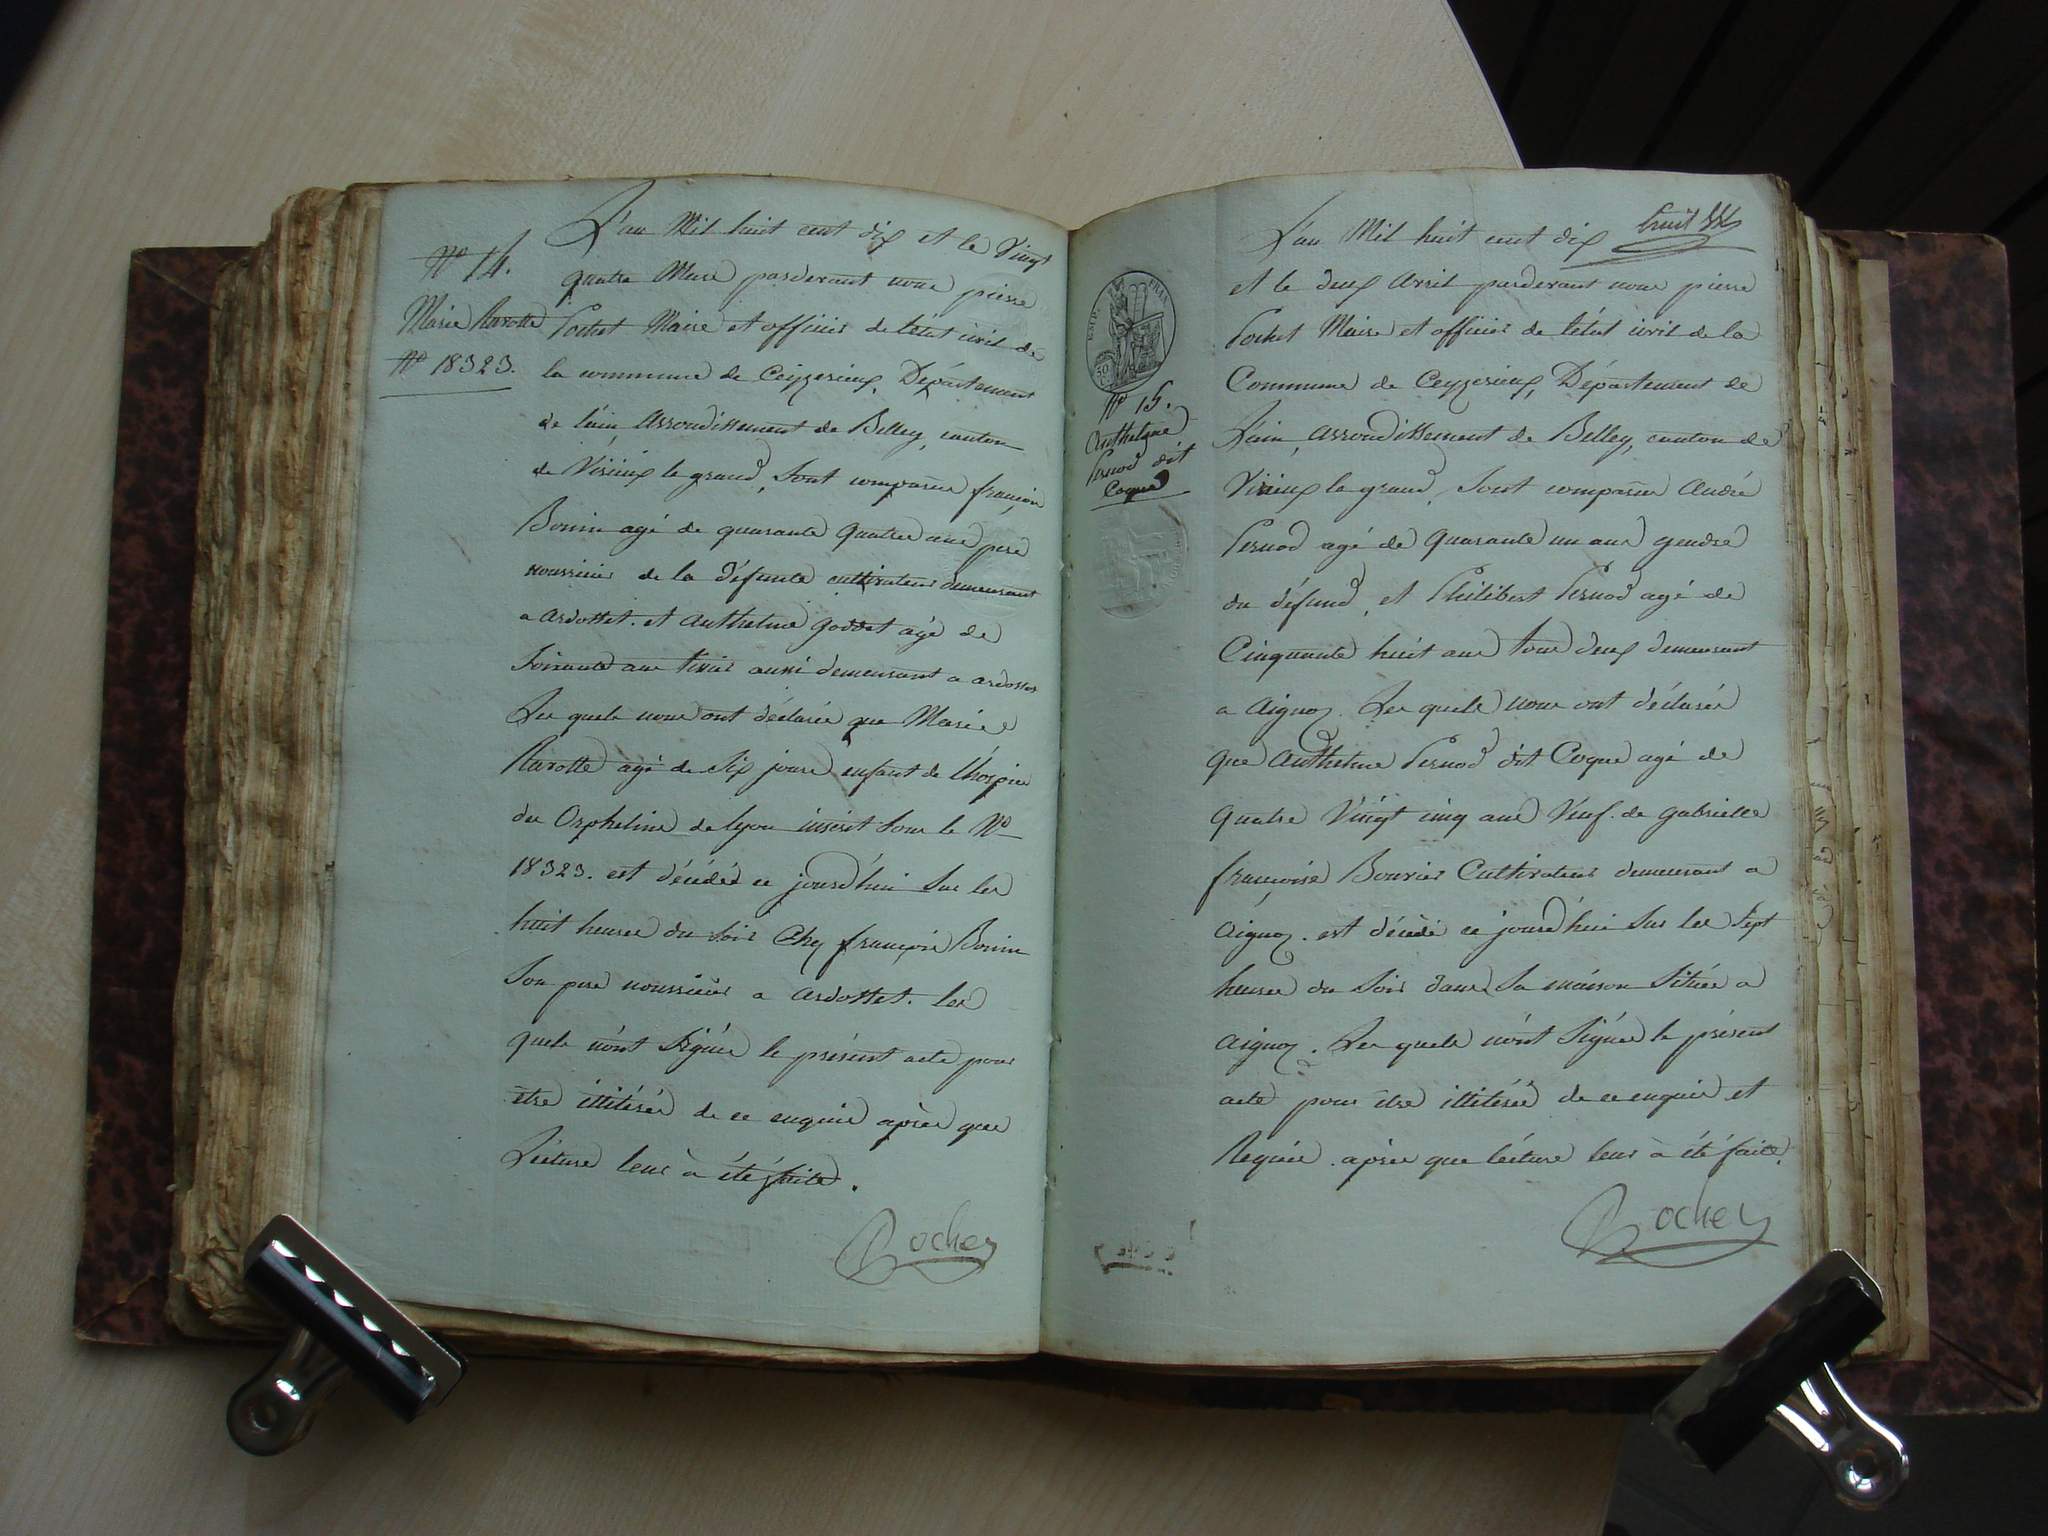 N° 14.
Marie Ravotte
N° 18323.
L'an Mil huit cent dix et le Vingt
quatre Mars pardevant nous pierre
Rochet Maire et officier de l'état civil de
la commune de Ceyzerieux, Département
de l'ain, Arrondissement de Belley, canton
de Virieux le grand, Sont comparus françois
Bonin agé de quarante quatre ans pere
nourricier de la défunte cultivateur demeurant
a ardosset. et anthelme goddet agé de
Soixante ans tixier aussi demeurant a ardosset
Les quels nous ont déclarés que Marie
Ravotte agé de Six jours enfant de l'hospice
des Orphelins de lyon inscrit Sous le N°
18323. est décédé ce jourd'hui Sur les
huit heures du Soir Chez françois Bonin
Son pere nourricier a ardosset. les
quels n'ont Signés le présent acte pour
être illitérés de ce enquis après que
Lécture leur à été faite.
Rochet
huit
L'an Mil huit cent dix
et le deux avril pardevant nous pierre
Rochet Maire et officier de l'état civil de la
Commune de Ceyzerieux, Département de
L'ain, arrondissement de Belley, canton de
Virieux le grand, Sont comparus André
Pernod agé de Quarante un ans gendre
du défund, et Philibert Pernod agé de
Cinquante huit ans tous deux demeurant
a aignoz. Les quels nous ont déclarés
que anthelme Pernod dit Coque agé de
quatre Vingt cinq ans Veuf. de gabrielle
françoise Bouvier Cultivateur demeurant a
aignoz. est décédé ce jourd'hui Sur les Sept
heures du Soir dans Sa maison Située a
aignoz. Les quels n'ont Signés le présent
acte pour être illitérés de ce enquis et
Requis. après que lécture leur à été faite.
Rochet
N° 15.
Anthelme
Pernod dit
Coque